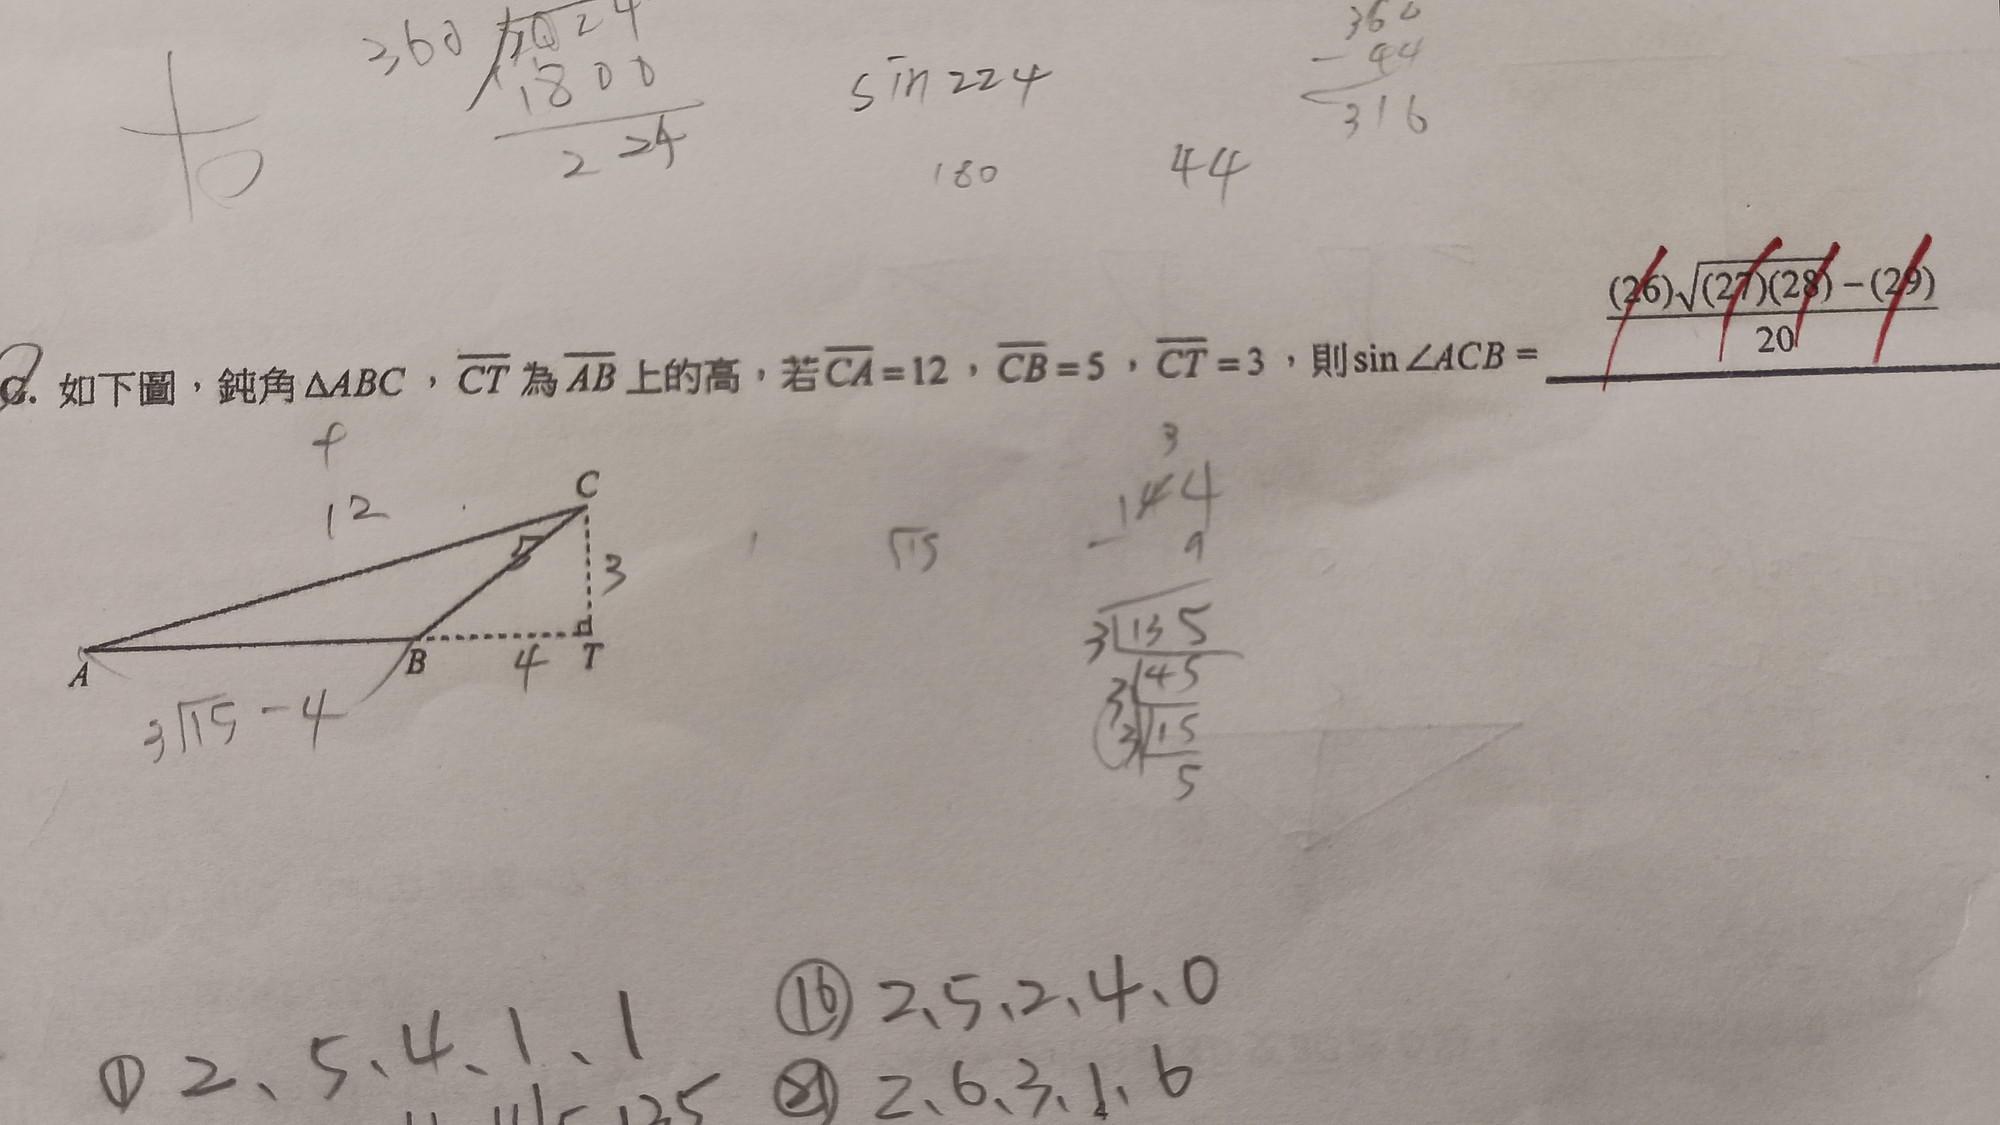 360 2024
1800
224
sin 224
180
44
360
- 44
316
如下圖，鈍角ΔABC，CT 為 AB 上的高，若 CA=12，CB=5，CT=3，則 sin∠ACB = (26)√(27)(28) − (29) / 20
12
C
5
3
A
B
4
T
3√15 - 4
√15
3
144
- 9
3 135
3 45
3 15
5
① 2、5、4、1、1
⑯ 2、5、2、4、0
㉑ 2、6、3、1、6